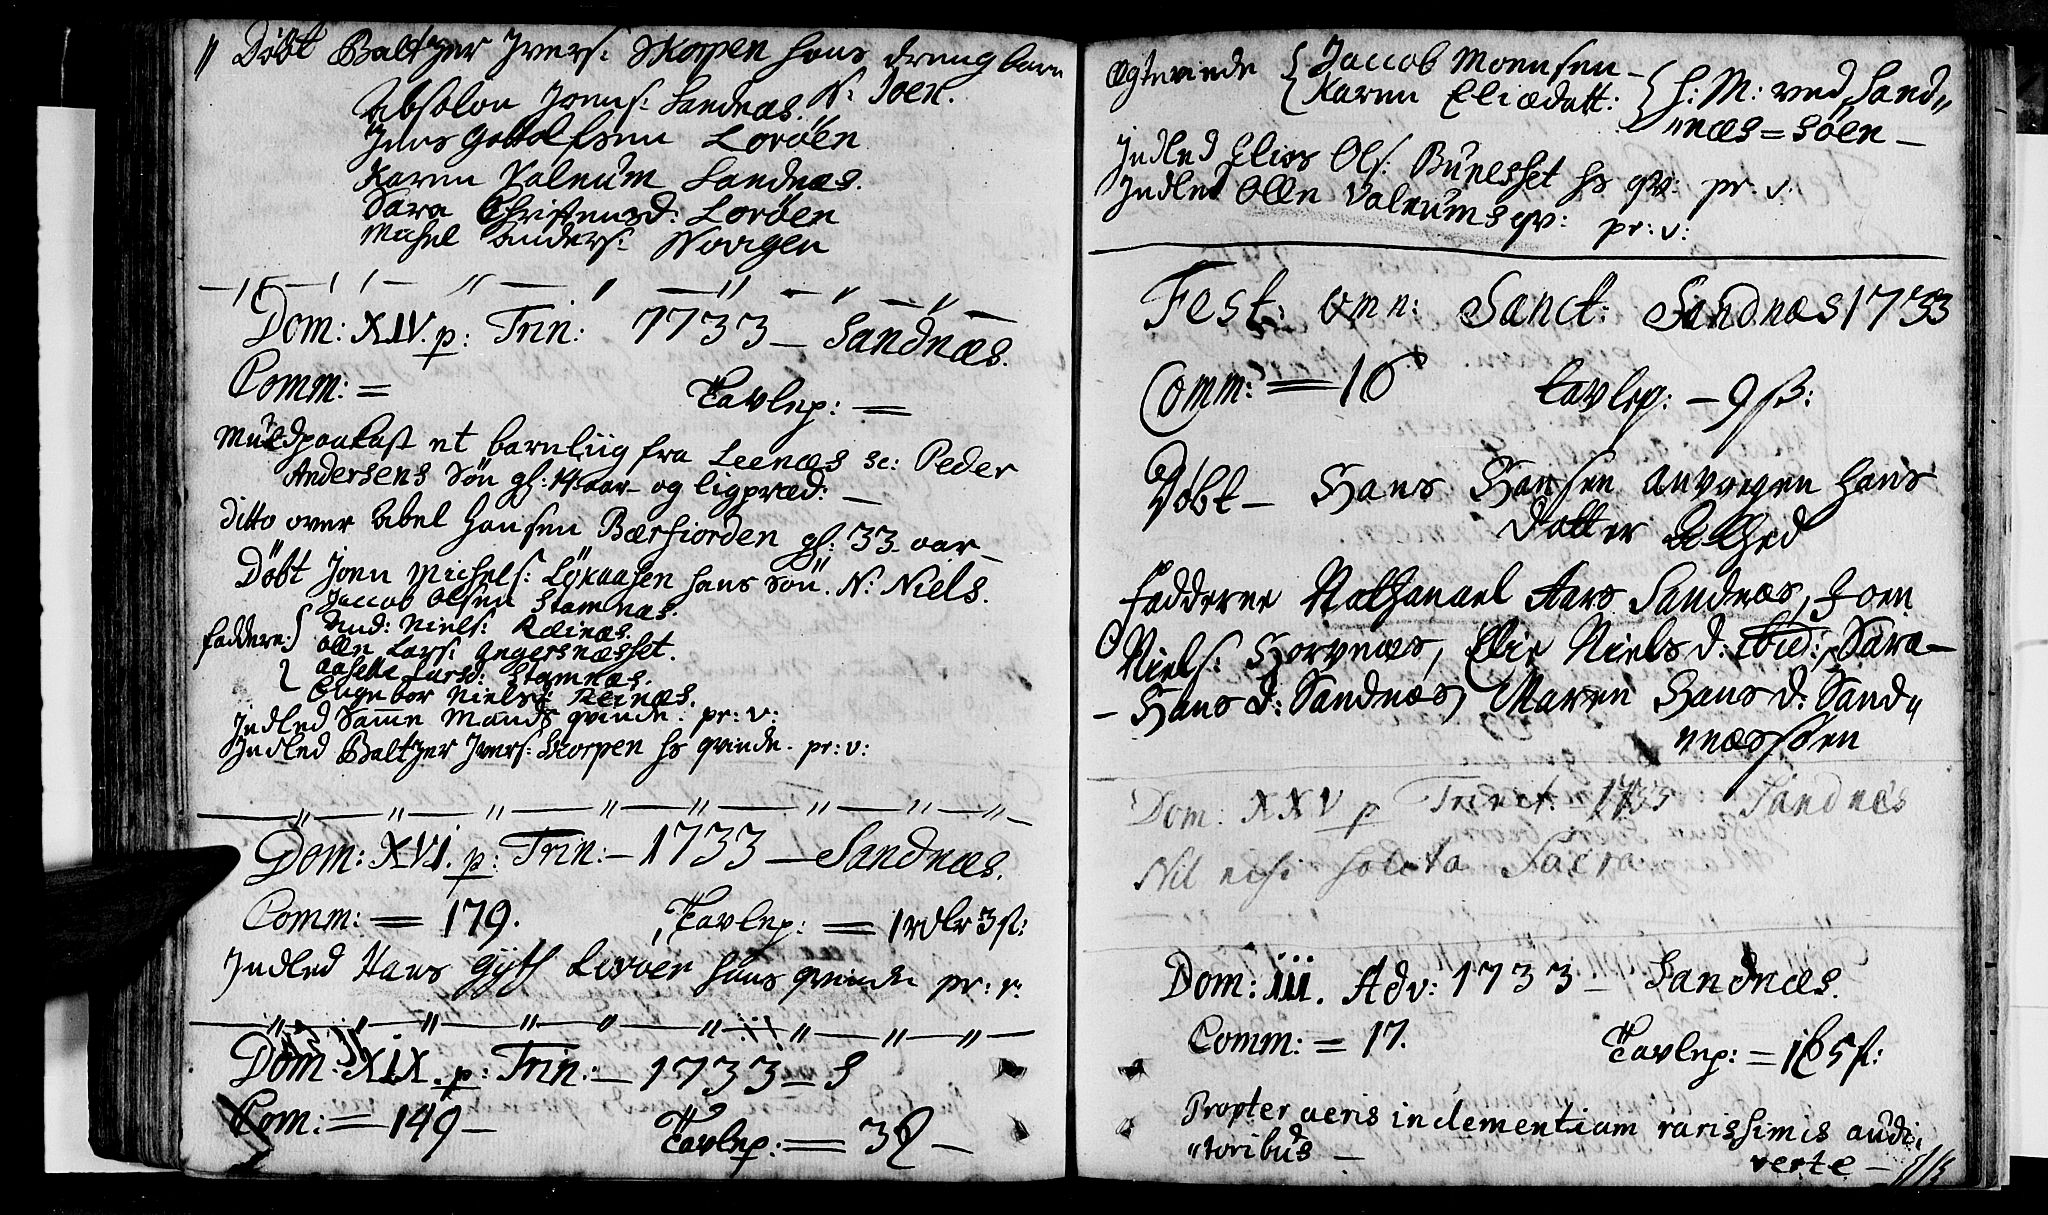 " Döbt Baltzer Ivers: Skorpen hans dreng barn
N: Joen.
Absolon Joens: Sandnæs.
Jens Lorøen
Karen Valnum Sandnæs.
Sara Christensd: Lorøen
Michel Anders: Waagen
Dom: XIV. p: Trin: 1733 – Sandnæs.
Comm: = Tavlep: =
Muldpaakast et barnliig fra Leenæs sc: Peder
Andersens Sön gl: 14 aar – og ligpræd: –
ditto over Abel Hansen Bærfiorden gl: 33 aar –
Döbt Joen Michels: Lökaasen hans Sön. N: Niels.
faddere: Jaccob Olsen Stamnæs.
And: Niels: Reinæs.
Olle Lars: Angersnæsset.
Aasele Larsd: Stamnæs.
Engebor Nielsd: Reinæs.
Indled Samme Mands qvinde: pr: v:
Indled Baltzer Ivers: Skorpen hs qvinde. pr: v:
Dom: XVI. p: Trin: – 1733 – Sandnæs.
Comm: = 179. Tavlep: = 1 rdlr 3 ß:
Indled Hans Gyth Levoer hans qvinde pr: v.
Dom: XIX. p: Trin: – 1733 = S
Com: = 149 – Tavlep: =
Ægteviede { Jaccob Monsen –
Karen Eliædatt: { H: M: ved Sand"
"næs = söen –
Indled Elias Ols: Bunesset hs qv: pr: v:
Indled Olle Valnums qv: pr: v:
Fest: omn: Sanct: Sandnæs 1733
Comm: = 16 Tavlep: – 9 ß:
Döbt – Hans Hansen Anvogen hans
datter
Fadderne Nathanael Aars Sandnæs, Joen
Niels: Horvnæs, Elie Niels d: ibid:, Sara –
– Hans d: Sandnæs, Maren Hans d: Sand"
næssöen
Dom: XXV p Trinit: 1733 Sandnæs
Nil nisi solita Sacra.
Dom: iii. Adv: 1733 – Sandnæs.
Comm: = 17. Tavlep: =
Propter aeris inclementiam rarissimis audi,
"toribus – verte –